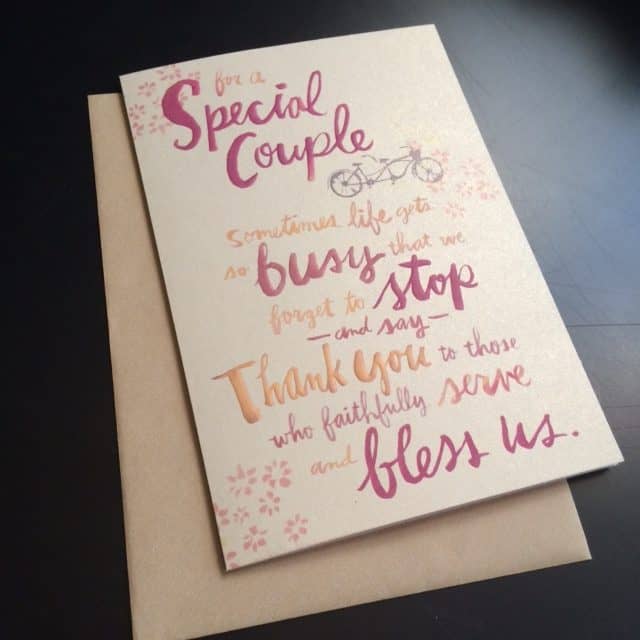 for a
Special
Couple
Sometimes life gets
so busy that we
forget to stop
—and say—
Thank you to those
who faithfully serve
and bless us.